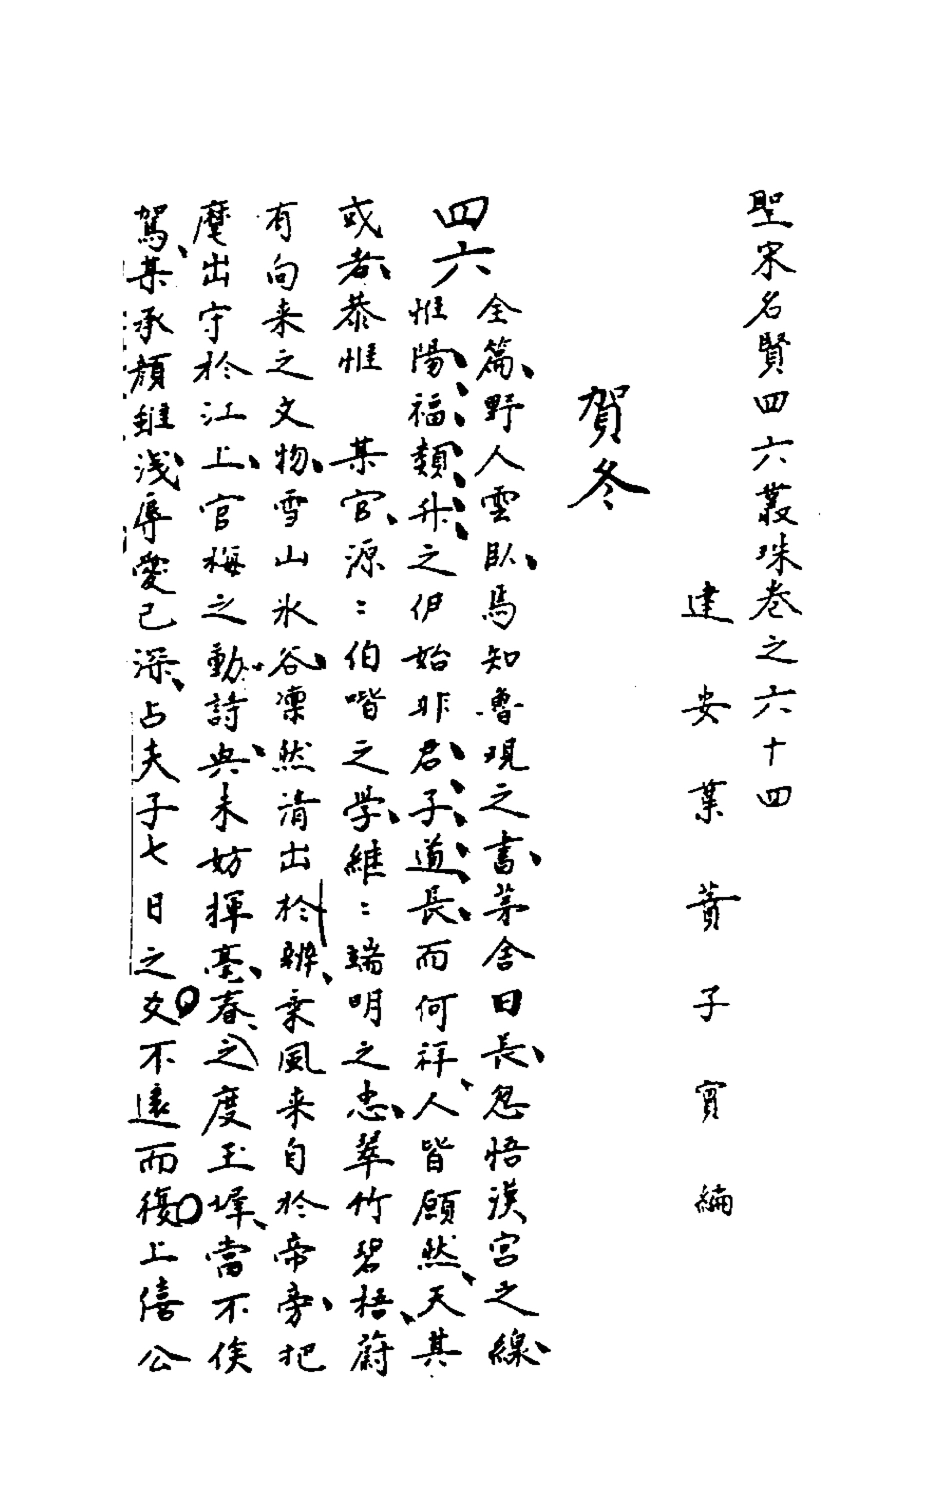 聖宋名賢四六叢珠卷之六十四
建安葉蕡子實編
賀冬
四六
全篇野人雲臥馬知魯現之書茅舍日長忽悟漢宮之線
惟陽福類升之伊始非君子道長而何祥人皆願然天其
或者恭惟 某官源〻伯喈之学維〻端明之忠翠竹碧梧蔚
有向来之文物雪山氷谷凜然清出於辦乗風来自於帝旁把
麾出守於江上官梅之動詩興未妨揮毫春之度玉墀當不俟
駕某承顔雖浅辱愛已深占夫子七日之爻不遠而復上僖公